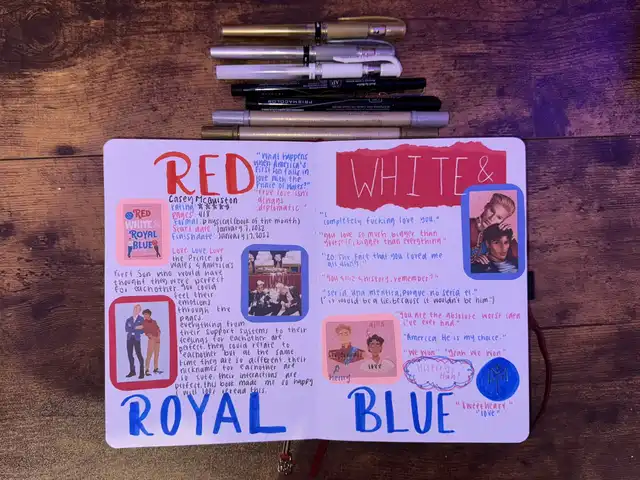 RED
"What happens
when America's
first son falls in
love with the
Prince of Wales?"
"True love isn't
always
diplomatic."
Casey McQuiston
rating: ★★★★★
Pages: 418
format: physical (book of the month)
start date: January 7, 2022
finish date: January 17, 2022
RED
WHITE &
ROYAL
BLUE
Love Love Love
the Prince of
Wales & America's
First Son who would have
thought they were perfect
for each other. You could
feel their
emotions
through the
pages.
everything from
their support systems to their
feelings for each other are
perfect. they could relate to
each other but at the same
time they are so different. their
nicknames for each other are
so cute. their interactions are
perfect. this book made me so happy
I will 100% reread this.
ROYAL
WHITE &
"I
completely fucking love you."
"you love so much bigger than
yourself, bigger than everything"
"You are
history, remember?"
"sería una mentira, porque no sería él."
(it would be a lie, because it wouldn't be him.)
"you are the absolute worst idea
I've ever had."
"America. He is my choice."
"We won." "Yeah. We won."
History,
Huh?
henry
alex
love
"Sweetheart"
"love"
BLUE
PRISMACOLOR